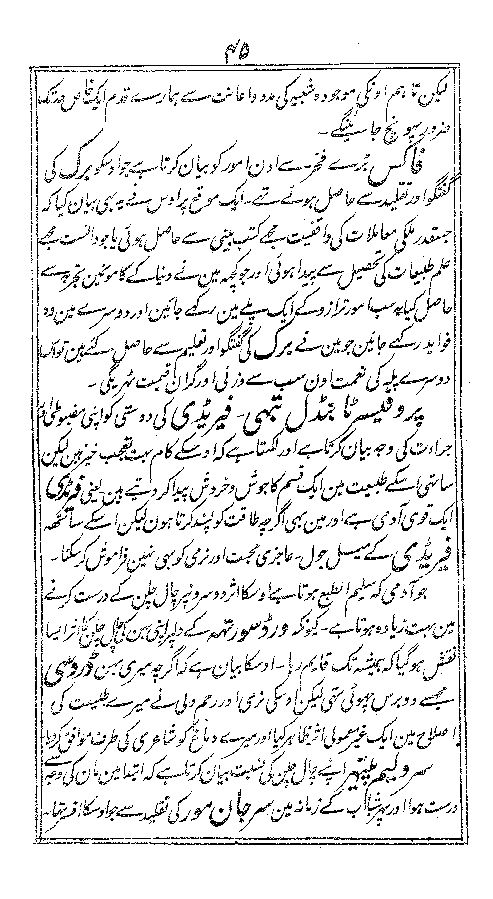 ۴۵
لیکن تاہم اونکی موجودہ شبیہ کی مدد و اعانت سے ہمارے قدم ایک خاص حد تک
ضرور پہونچ جائینگے ۔
فاکس بڑے فخر سے اون امور کو بیان کرتا ہے جو اوسکو برک کی
گفتگو اور تقلید سے حاصل ہوئے تھے ۔ ایک موقع پر اوس نے یہ بہی بیان کیا کہ
جسقدر ملکی معاملات کی واقفیت مجھے کتب بینی سے حاصل ہوئی یا جو دانست مجھے
علم طبیعات کی تحصیل سے پیدا ہوئی اور جو کچھہ مین نے دنیا کے کامونمین تجربہ سے
حاصل کیا یہ سب امور ترازو کے ایک پلے مین رکھے جائین اور دوسرے مین وہ
فواید رکھے جائین جو مین نے برک کی گفتگو اور تعلیم سے حاصل کئے ہین تو بلا شک
دوسرے پلہ کی نعمت اون سب سے وزنی اور گران قیمت ٹھریگی ۔
پروفیسر ٹائنڈل تنہی ۔ فیریڈی کی دوستی کو اپنی مضبوطی اور
جراءت کی وجہ بیان کرتا ہے اور لکھتا ہے کہ اوسکے کام بہت تعجب خیز ہین لیکن
ساتہی اسکے طبیعت مین ایک قسم کا جوش و خروش پیدا کر دیتے ہین یعنی فریڈی
ایک قوی آدمی ہے اور مین بھی اگرچہ طاقت کو پسند کرتا ہون لیکن اسکے ساتھہ
فیریڈی کے میل جول ۔ عاجزی محبت اور نرمی کو بہی نہین فراموش کر سکتا ۔
جو آدمی کہ سلیم الطبع ہوتا ہے اوسکا اثر دوسرونپر چال چلن کے درست کرنے
مین بہت زیادہ ہوتا ہے ۔ کیونکہ ورڈسورتھہ کے دلپر اپنی بہن کی چال چلن کا اثر ایسا
نقش ہو گیا کہ ہمیشہ تک قایم رہا ۔ اوسکا بیان ہے کہ اگرچہ میری بہن ڈوروسی
مجھسے دو برس چھوٹی تھی لیکن اوسکی نرمی اور رحم دلی نے میرے طبیعت کی
اصلاح مین ایک غیر معمولی اثر ظاہر کیا اور میرے دماغ کو شاعری کی طرف موافق کر دیا
سر ولیم نیپیر اپنے چال چلن کی نسبت بیان کرتا ہے کہ ابتدا مین مان کی وجہ سے
درست ہوا اور پہر شباب کے زمانہ مین سر جان مور کی تقلید سے جو اوسکا افسر تھا۔